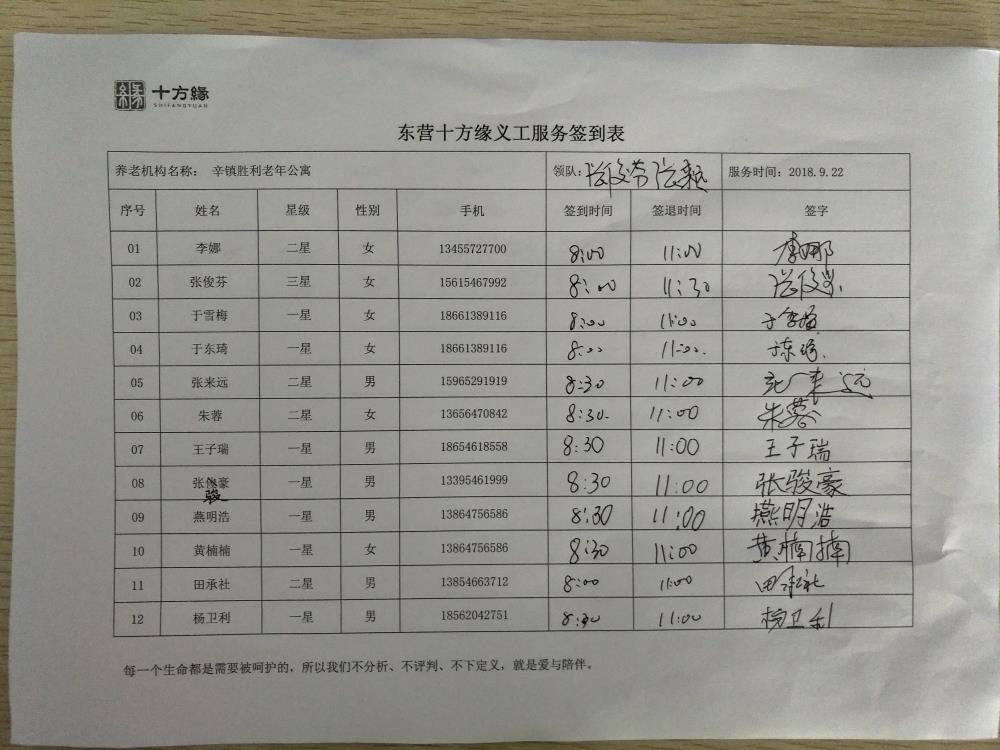 十方緣
SHIFANGYUAN
东营十方缘义工服务签到表
养老机构名称： 辛镇胜利老年公寓 领队: 张俊芬 服务时间：2018.9.22
序号 姓名 星级 性别 手机 签到时间 签退时间 签字
01 李娜 二星 女 13455727700 8:00 11:00 李娜
02 张俊芬 三星 女 15615467992 8:00 11:30 张俊芬
03 于雪梅 一星 女 18661389116 8:00 11:00 于雪梅
04 于东琦 一星 女 18661389116 8:00 11:00 于东琦
05 张来远 二星 男 15965291919 8:30 11:00 张来远
06 朱蓉 二星 女 13656470842 8:30 11:00 朱蓉
07 王子瑞 一星 男 18654618558 8:30 11:00 王子瑞
08 张俊豪 骏 一星 男 13395461999 8:30 11:00 张骏豪
09 燕明浩 一星 男 13864756586 8:30 11:00 燕明浩
10 黄楠楠 一星 女 13864756586 8:30 11:00 黄楠楠
11 田承社 二星 男 13854663712 8:00 11:00 田承社
12 杨卫利 一星 男 18562042751 8:30 11:00 杨卫利
每一个生命都是需要被呵护的，所以我们不分析、不评判、不下定义，就是爱与陪伴。